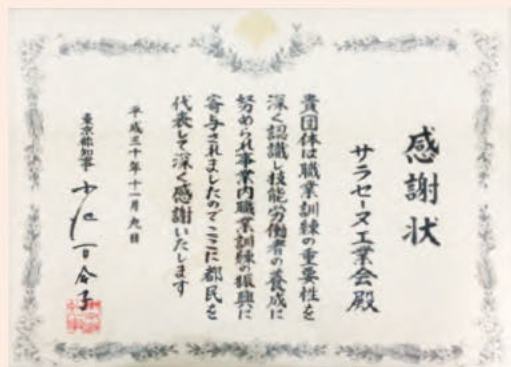 感謝状
サラセーヌ工業会殿
貴団体は職業訓練の重要性を
深く認識し技能労働者の養成に
努められ事業内職業訓練の振興に
寄与されましたのでここに都民を
代表して深く感謝いたします
平成三十年十一月九日
東京都知事 小池百合子